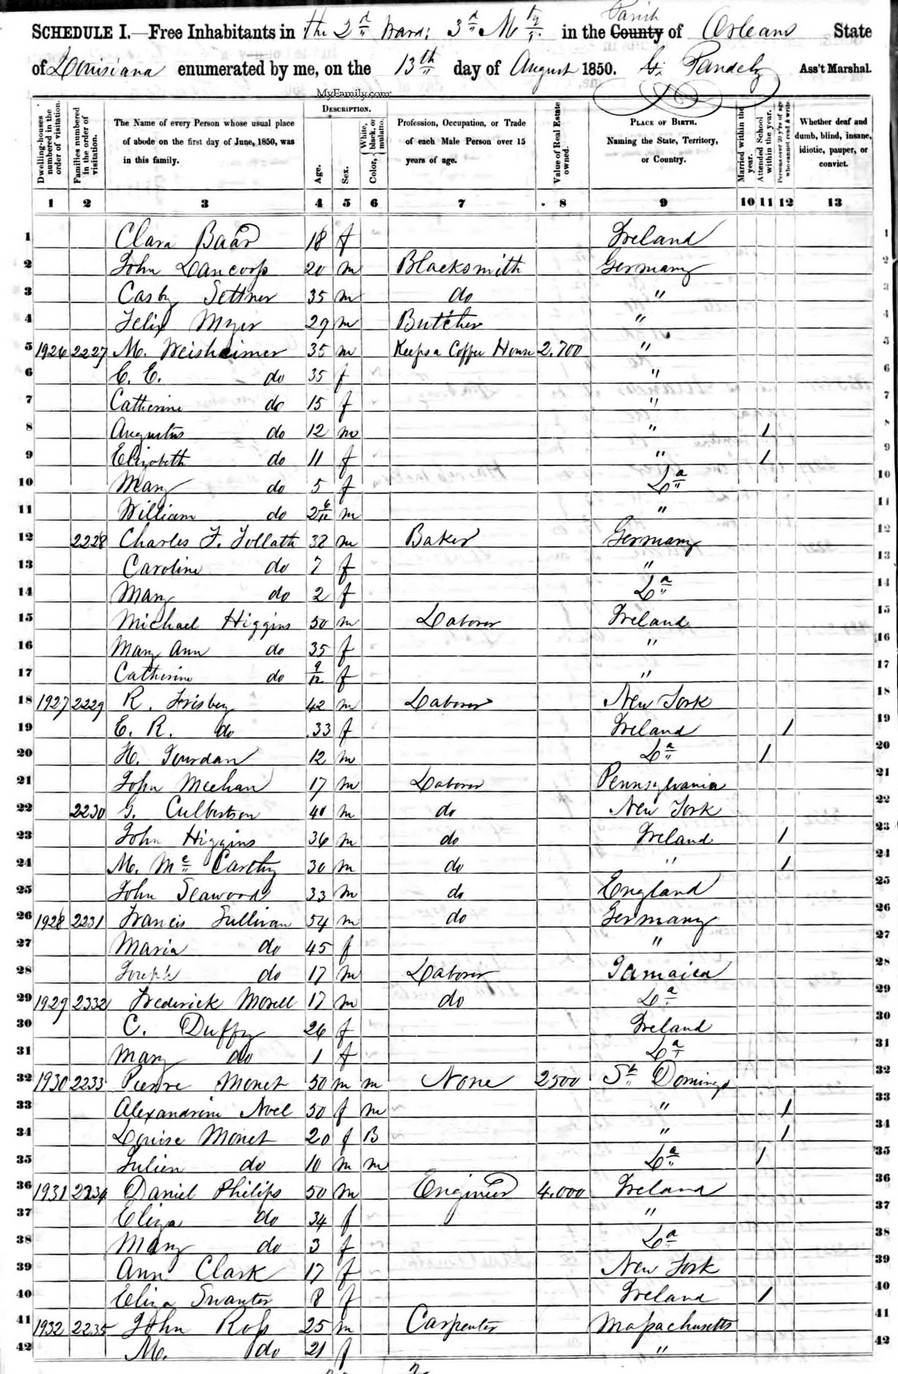 SCHEDULE I.—Free Inhabitants in the 2d Ward; 3d Mty in the County Parish of Orleans State
of Louisiana enumerated by me, on the 13th day of August 1850. G. Pandely Ass't Marshal.
MyFamily.com
Dwelling-houses numbered in the order of visitation.
Families numbered in the order of visitation.
The Name of every Person whose usual place of abode on the first day of June, 1850, was in this family.
DESCRIPTION.
Age.
Sex.
Color, White, black, or mulatto.
Profession, Occupation, or Trade of each Male Person over 15 years of age.
Value of Real Estate owned.
PLACE OF BIRTH. Naming the State, Territory, or Country.
Married within the year.
Attended School within the year.
Persons over 20 y'rs of age who cannot read & write.
Whether deaf and dumb, blind, insane, idiotic, pauper, or convict.
1 2 3 4 5 6 7 8 9 10 11 12 13
1 Clara Baar 18 f Ireland 1
2 John Dancorp 20 m Blacksmith Germany 2
3 Casby Settner 35 m do " 3
4 Felix Myer 29 m Butcher " 4
5 1926 2227 M. Weisheimer 35 m Keeps a Coffee House 2.700 " 5
6 C. C. do 35 f " 6
7 Catherine do 15 f " 7
8 Augustus do 12 m " 1 8
9 Elizabeth do 11 f " 1 9
10 Mary do 5 f La 10
11 William do 2 6/12 m " 11
12 2228 Charles F. Follath 32 m Baker Germany 12
13 Caroline do 7 f " 13
14 Mary do 2 f La 14
15 Michael Higgins 50 m Laborer Ireland 15
16 Mary Ann do 35 f " 16
17 Catherine do 9/12 f " 17
18 1927 2229 R. Frisbey 42 m Laborer New York 18
19 E. R. do 33 f Ireland 1 19
20 H. Jourdan 12 m La 1 20
21 John Meehan 17 m Laborer Pennsylvania 21
22 2230 G. Culbertson 40 m do New York 22
23 John Higgins 36 m do Ireland 1 23
24 M. Mc Carthy 30 m do " 1 24
25 John Seawood 33 m do England 25
26 1928 2231 Francis Sullivan 54 m do Germany 26
27 Maria do 45 f " 27
28 Joseph do 17 m Laborer Jamaica 28
29 1929 2332 Frederick Morell 17 m do La 29
30 C. Duffy 26 f Ireland 30
31 Mary do 1 f La 31
32 1930 2233 Pierre Monet 50 m m None 2500 St Domingo 32
33 Alexandrine Noel 50 f m " 1 33
34 Louise Monet 20 f B " 1 34
35 Julien do 10 m m La 1 35
36 1931 2234 Daniel Philips 50 m Engineer 4.000 Ireland 36
37 Eliza do 34 f " 37
38 Mary do 3 f La 38
39 Ann Clark 17 f New York 39
40 Eliza Swanton 8 f Ireland 1 40
41 1932 2235 John Ross 25 m Carpenter Massachusetts 41
42 M. do 21 f " 42